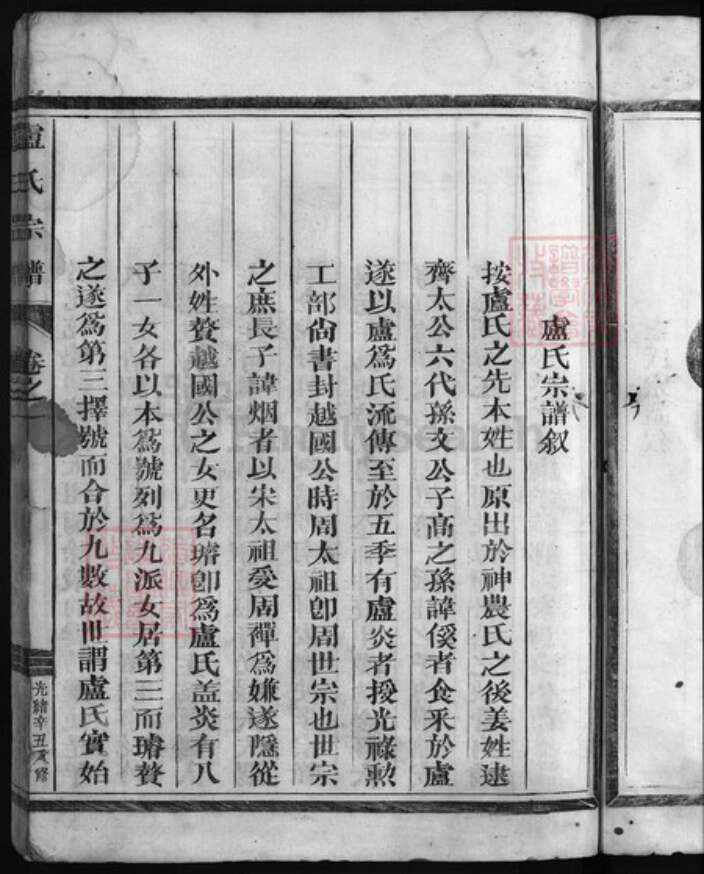 盧氏宗譜叙
按盧氏之先本姓也原出於神農氏之後姜姓逮
齊太公六代孫文公子高之孫諱傒者食釆於盧
遂以盧爲氏流傳至於五季有盧炎者授光祿勲
工部尙書封越國公時周太祖卽周世宗也世宗
之庶長子諱烟者以宋太祖受周禪爲嫌遂隱從
外姓贅越國公之女更名璿卽爲盧氏盖炎有八
子一女各以本爲號列爲九派女居第三而璿贅
之遂爲第三擇號而合於九數故世謂盧氏實始
盧氏宗譜
卷之
光緒辛丑重修